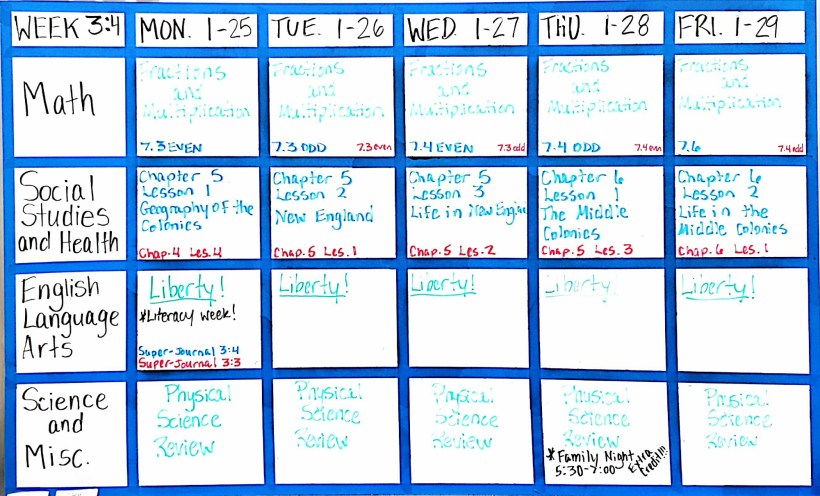 WEEK 3:4
MON. 1-25
TUE. 1-26
WED. 1-27
THU. 1-28
FRI. 1-29
Math
Fractions
and
Multiplication
7.3 EVEN
Fractions
and
Multiplication
7.3 ODD 7.3 even
Fractions
and
Multiplication
7.4 EVEN 7.3 odd
Fractions
and
Multiplication
7.4 ODD 7.4 even
Fractions
and
Multiplication
7.6 7.4 odd
Social
Studies
and Health
Chapter 5
Lesson 1
Geography of the
Colonies
Chap.4 Les.4
Chapter 5
Lesson 2
New England
Chap.5 Les.1
Chapter 5
Lesson 3
Life in New England
Chap.5 Les.2
Chapter 6
Lesson 1
The Middle
Colonies
Chap.5 Les.3
Chapter 6
Lesson 2
Life in the
Middle Colonies
Chap.6 Les.1
English
Language
Arts
Liberty!
*Literacy Week!
Super-Journal 3:4
Super-Journal 3:3
Liberty!
Liberty!
Liberty!
Liberty!
Science
and
Misc.
Physical
Science
Review
Physical
Science
Review
Physical
Science
Review
Physical
Science
Review
*Family Night
5:30-7:00
Extra
Credit!!!
Physical
Science
Review